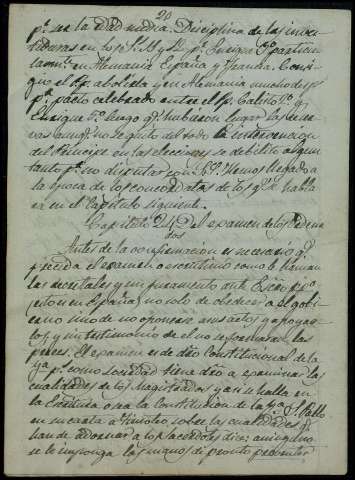 20
pr. ser la edad media. Disciplina de las inves
tiduras en los
en Alemania España y Francia. Consi
guió el abolida y en Alemania mucho des
pr. pacto celebrado entre el Calisto 2º y
Enrique 5º luego qe. hubieron lugar las reser
vas aunqe. no se quitó del todo la intervencion
del Principe en las elecciones se debilitó algun
tanto pr. no disputar con Hemos llegado a
la época de los concordatos de los qe. se habla
rá en el Capitulo siguiente.
Capitulo 24 Del examen de los Ordenan
dos
Antes de la confirmacion es necesario qe.
preceda el examen o escrutinio como le llaman
las decretales y un juramento ante
(esto en España) no solo de obedecer a el gobi
erno sino de no oponerse a sus actos y apoyar
los, y un testimonio de el no
preces. El examen es de dro Constitucional de la
ya. pr. como sociedad tiene dro a examinar las
cualidades de los Magistrados y asi se halla en
la Escritura o sea la Constitucion de la ya. S. Pablo
en su carta a Timoteo, sobre las cualidades qe.
han de adornar a los sacerdotes dice: a ninguno
se le imponga las manos de pronto